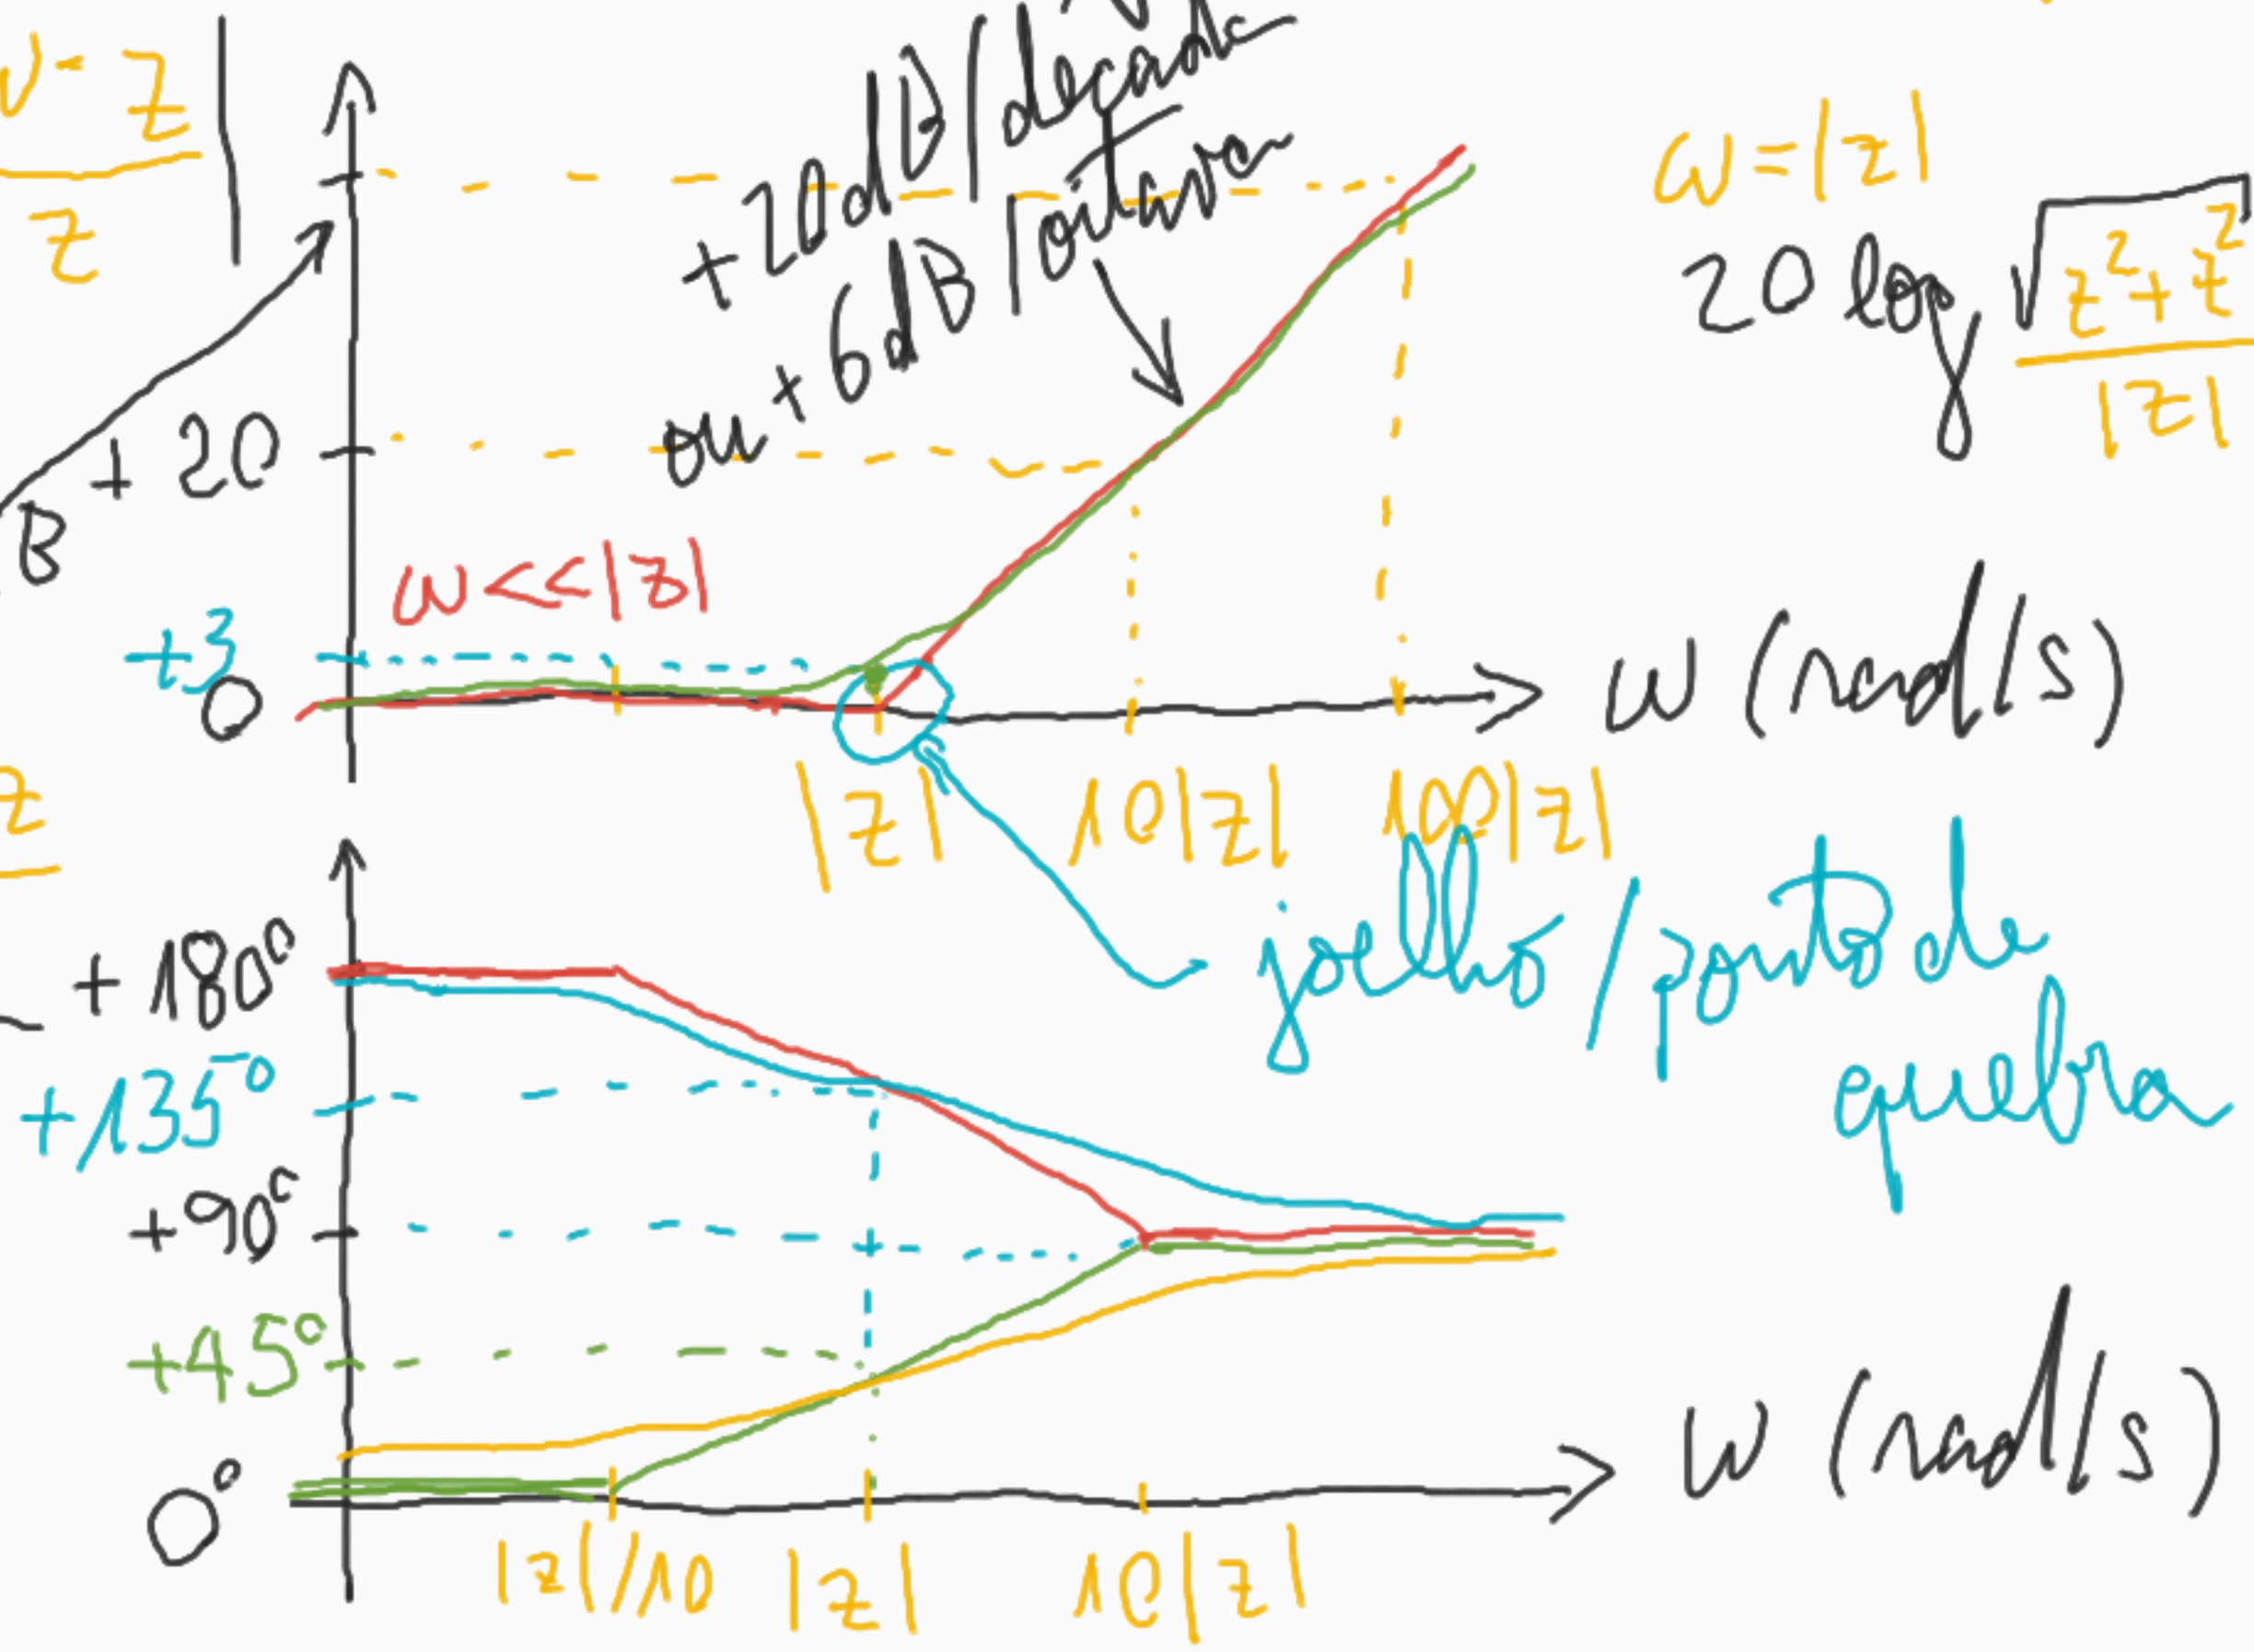 +20dB/década
ou +6dB/oitava
ω=|z|
20 log √z²+z²
|z|
z
z
B
+20
ω<<|z|
+3
0
ω (rad/s)
|z| 10|z| 100|z|
z
joelho/ponto de
quebra
+180°
+135°
+90°
+45°
0°
ω (rad/s)
|z|/10 |z| 10|z|